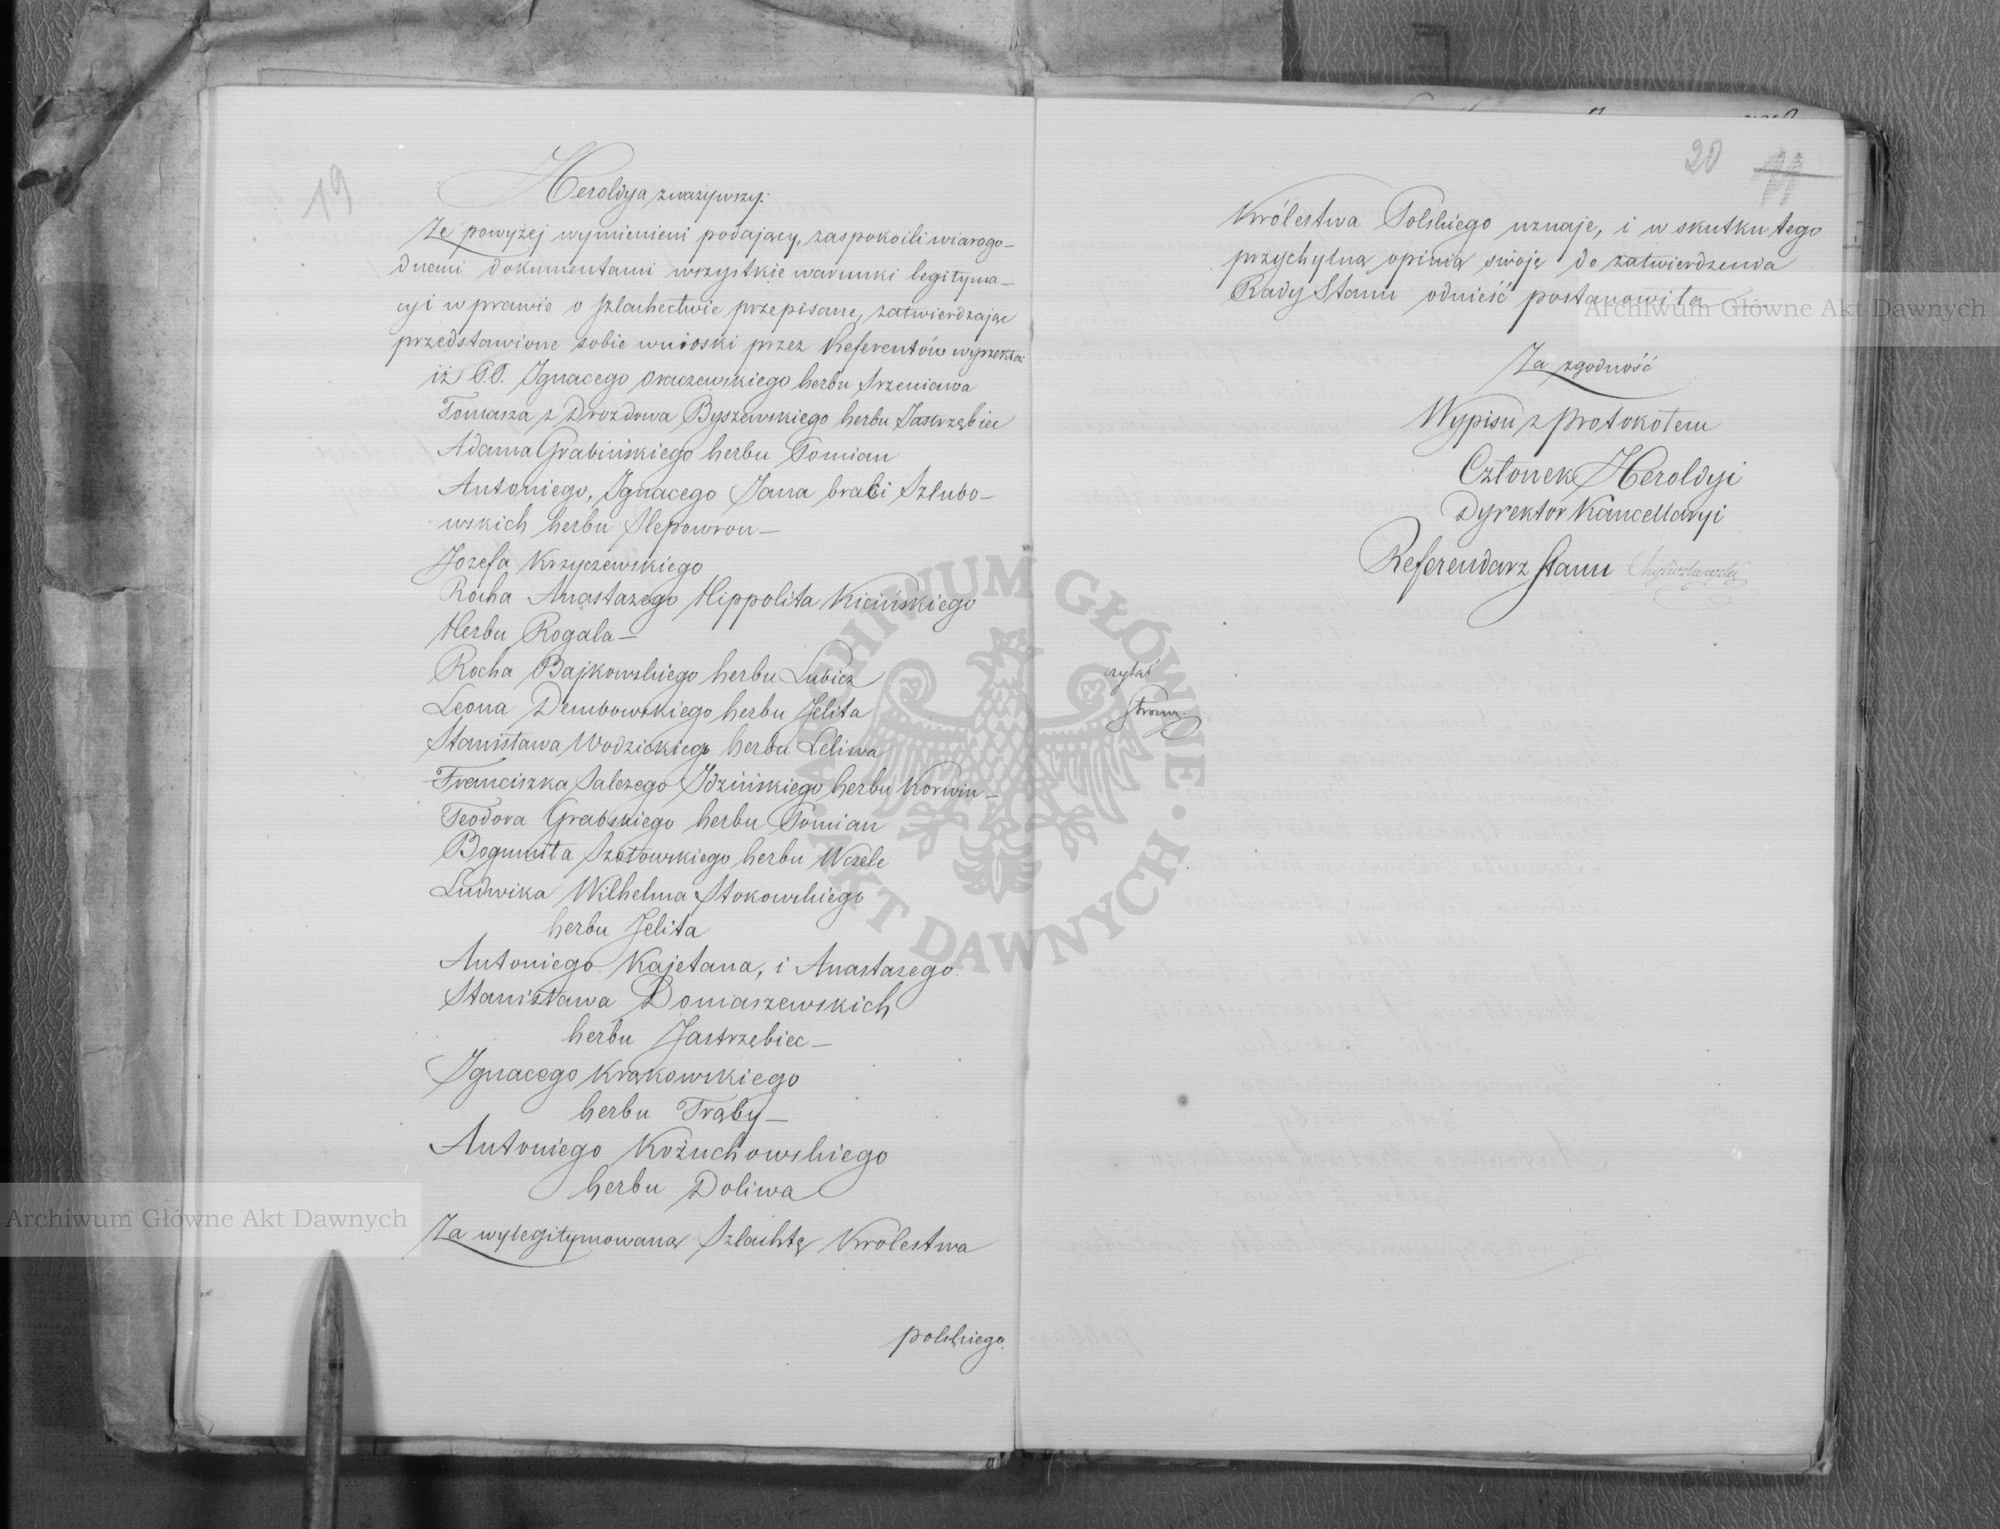 19
Heroldya zważywszy:
Że powyżej wymienieni podający, zaspokoili wiarogo-
dnemi dokumentami wszystkie warunki legityma-
cyi w prawie o szlachectwie przepisane, zatwierdzając
przedstawione sobie wnioski przez Referentów
iż P.P. Ignacego Oraczewskiego herbu Srzeniawa
Tomasza z Drozdowa Byszewskiego herbu Jastrzębiec
Adama Grabińskiego herbu Pomian
Antoniego, Ignacego Jana braci Szlubo-
wskich herbu Slepowron-
Jozefa Krzyczewskiego
Rocha Anastazego Hippolita Kicińskiego
Herbu Rogala-
Rocha Bajkowskiego herbu Lubicz
Leona Dembowskiego herbu Jelita
Stanisława Wodzickiego herbu Leliwa
Franciszka Salezego Idzińskiego herbu Korwin-
Teodora Grabskiego herbu Pomian
Bogumiła Szołowskiego herbu Wczele
Ludwika Wilhelma Stokowskiego
herbu Jelita
Antoniego Kajetana, i Anastazego
Stanisława Domaszewskich
herbu Jastrzębiec-
Ignacego Krąkowskiego
herbu Trąby-
Antoniego Kożuchowskiego
herbu Doliwa
Za wylegitymowaną Szlachtę Krolestwa
polskiego.
20 11
Królestwa Polskiego uznaje, i w skutku tego
przychylną opinią swoję do zatwierdzenia
Rady Stanu odnieść postanowiła
Za zgodność
Wypisu z Protokołem
Członek Heroldyi
Dyrektor Kancellaryi
Referendarz Stanu
czytał
Archiwum Główne Akt Dawnych
Archiwum Główne Akt Dawnych
ARCHIWUM GŁÓWNE AKT DAWNYCH